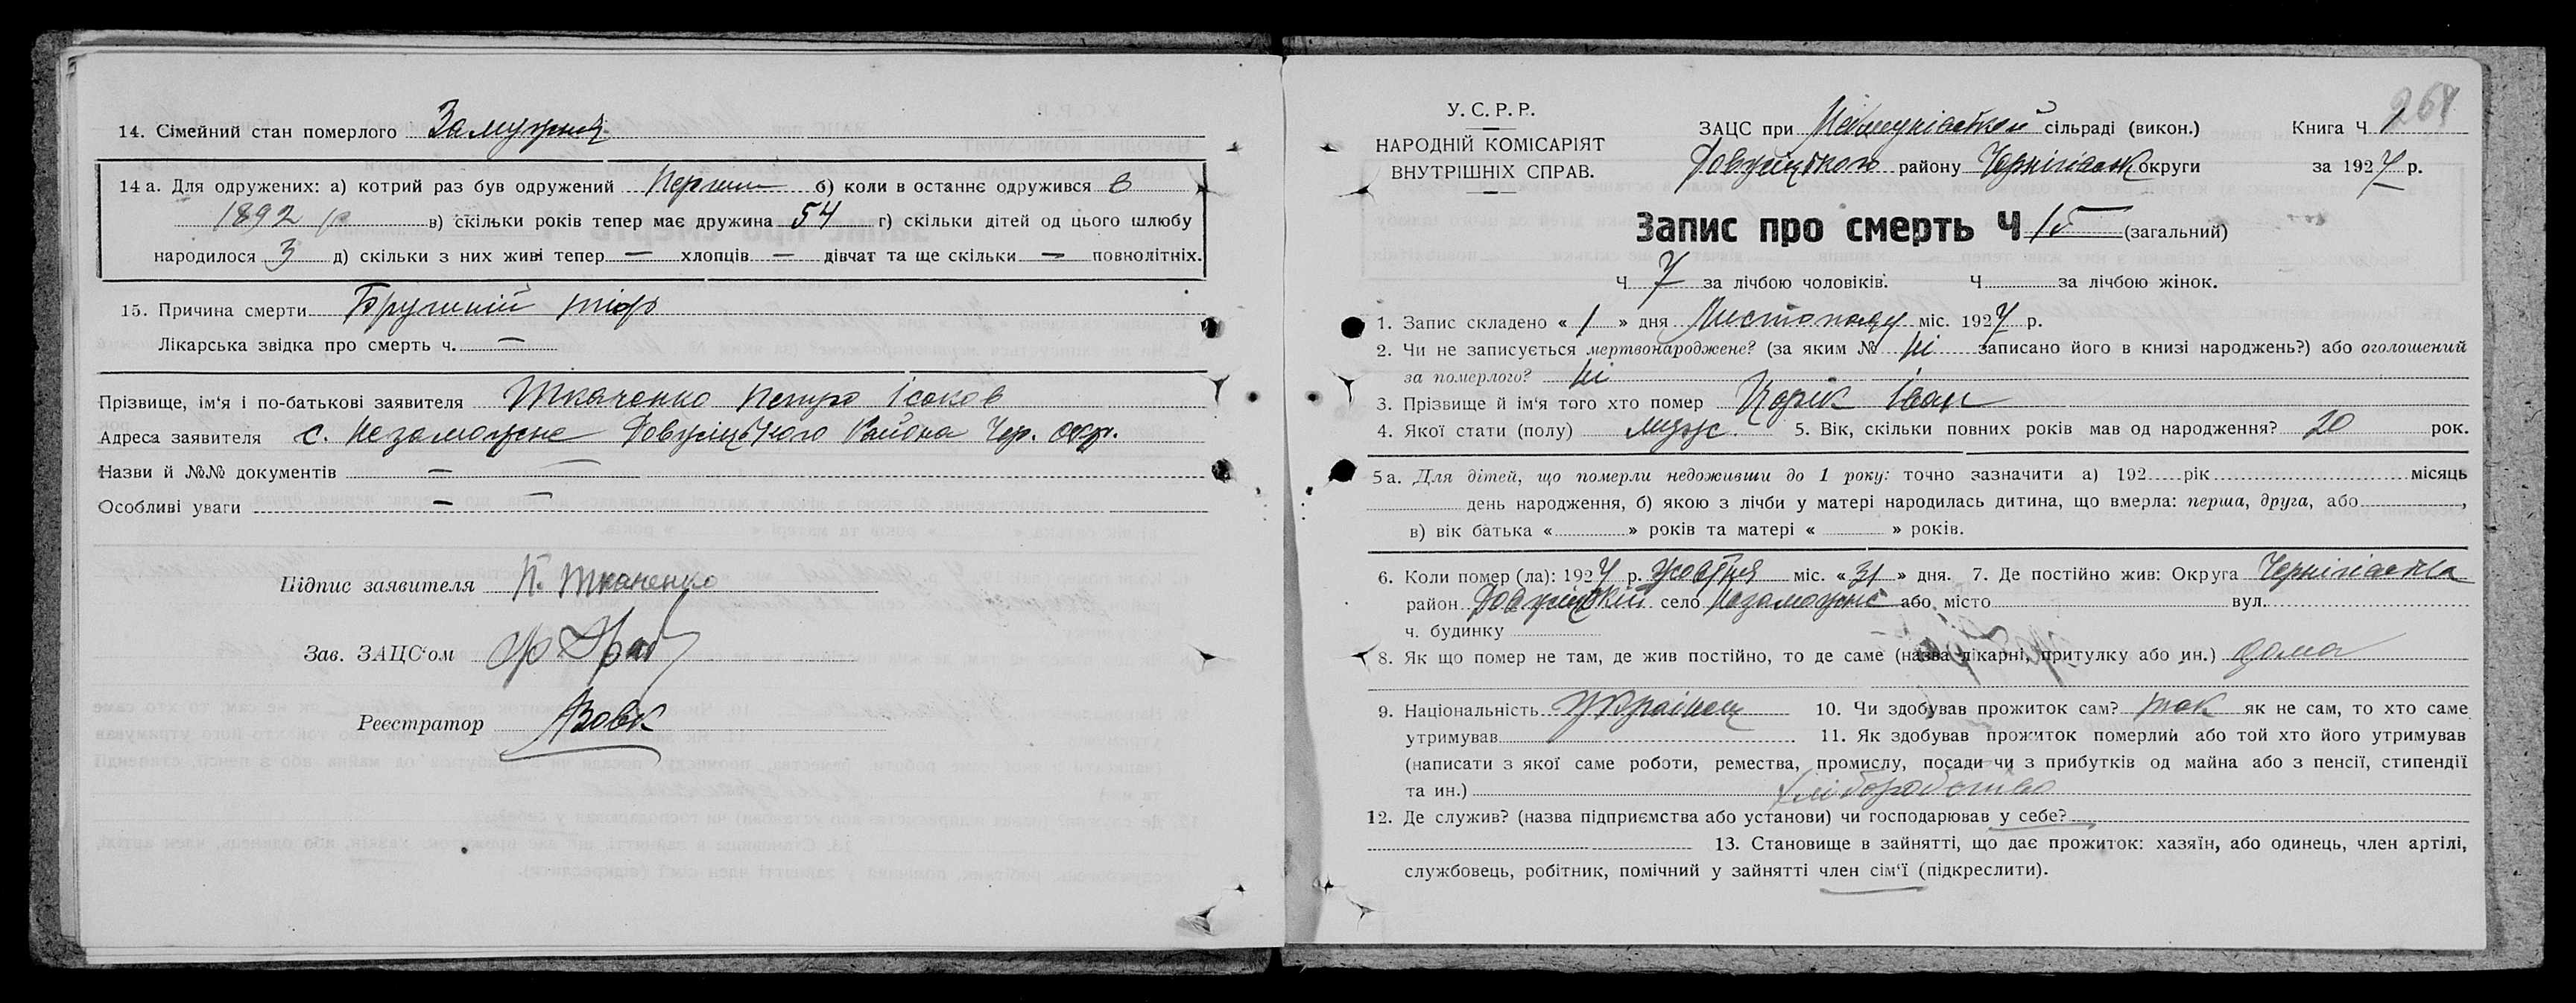 14. Сімейний стан померлого Замужня
14 а. Для одружених: а) котрий раз був одружений Перший б) коли в останнє одружився в
1892 р в) скільки років тепер має дружина 54 г) скільки дітей од цього шлюбу
народилося 3 д) скільки з них живі тепер — хлопців — дівчат та ще скільки — повнолітніх.
15. Причина смерти Брушний тіф
Лікарська звідка про смерть ч. —
Прізвище, ім'я і по-батькові заявителя Ткаченко Петро Ісаков
Адреса заявителя с. Незаможне Довжицького Района Чер. окр.
Назви й №№ документів — —
Особливі уваги — —
Підпис заявителя П. Ткаченко
Зав. ЗАЦС'ом
Реєстратор АЗовк
264
У. С. Р. Р.
НАРОДНІЙ КОМІСАРІЯТ
ВНУТРІШНІХ СПРАВ.
ЗАЦС при сільраді (викон.) Книга Ч 1
Довжицького району Чернігівськ округи за 1927 р.
Запис про смерть Ч 15 (загальний)
Ч 7 за лічбою чоловіків. Ч за лічбою жінок.
1. Запис складено « 1 » дня Листопаду міс. 1927 р.
2. Чи не записується мертвонароджене? (за яким № ні записано його в книзі народжень?) або оголошений
за померлого? ні
3. Прізвище й ім'я того хто помер Цорік Іван
4. Якої стати (полу) муж. 5. Вік, скільки повних років мав од народження? 20 рок.
5 а. Для дітей, що померли недоживши до 1 року: точно зазначити а) 192 рік місяць
день народження, б) якою з лічби у матері народилась дитина, що вмерла: перша, друга, або ,
в) вік батька « » років та матері « » років.
6. Коли помер (ла): 1927 р. Жовтня міс. «31» дня. 7. Де постійно жив: Округа Чернігівська
район Довжицький село Незаможнє або місто вул.
ч. будинку
8. Як що помер не там, де жив постійно, то де саме (назва лікарні, притулку або ин.) дома
9. Національність Українец 10. Чи здобував прожиток сам? так як не сам, то хто саме
утримував 11. Як здобував прожиток померлий або той хто його утримував
(написати з якої саме роботи, ремества, промислу, посади чи з прибутків од майна або з пенсії, стипендії
та ин.) хліборобство
12. Де служив? (назва підприємства або установи) чи господарював у себе?
13. Становище в зайнятті, що дає прожиток: хазяїн, або одинець, член артілі,
службовець, робітник, помічний у зайнятті член сім'ї (підкреслити).